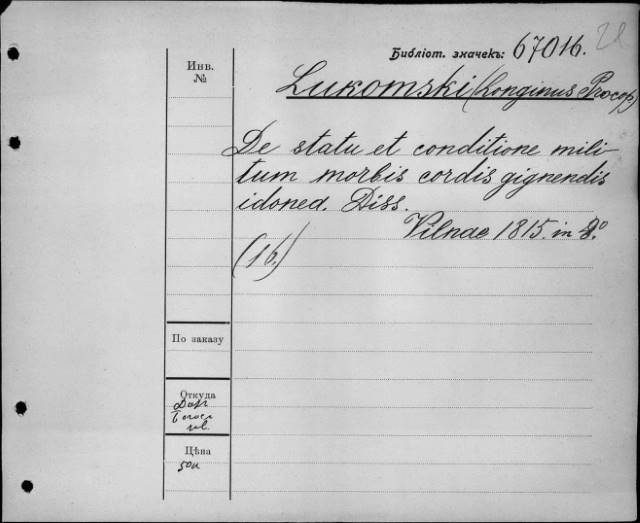 Библіот. значекъ: 67016.
Инв.
№
Lukomski (Longinus Procop)
De statu et conditione mili-
tum morbis cordis gignendis
idonea. Diss.
Vilnae 1815. in 8.º
(16.)
По заказу
Откуда
Цѣна
50к